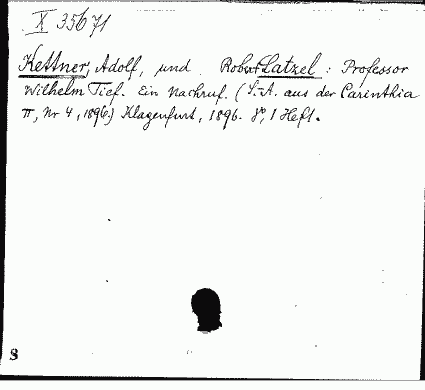 X 35671
Kettner, Adolf, und Robert Latzel: Professor
Wilhelm Tief. Ein Nachruf. (S.-A. aus der Carinthia
II, Nr 4, 1896.) Klagenfurt, 1896. 8°, 1 Heft.
S